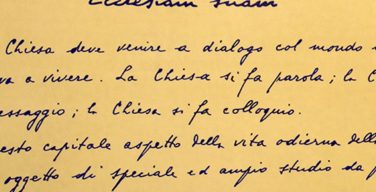 Ecclesiam suam
Chiesa deve venire a dialogo col mondo
va a vivere. La Chiesa si fa parola; la C
essaggio; la Chiesa si fa colloquio.
esto capitale aspetto della vita odierna della
oggetto di speciale ed ampio studio da p